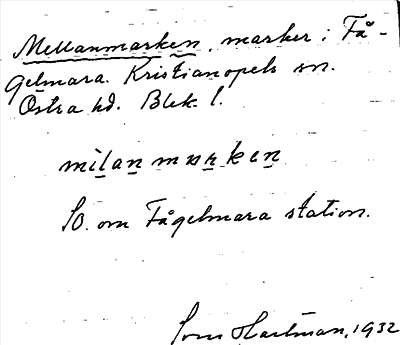 Mellanmarken, marker i Få-
gelmara. Kristianopels sn.
Östra hd. Blek. l.
milan marken
SO. om Fågelmara station.
Hartman, 1932